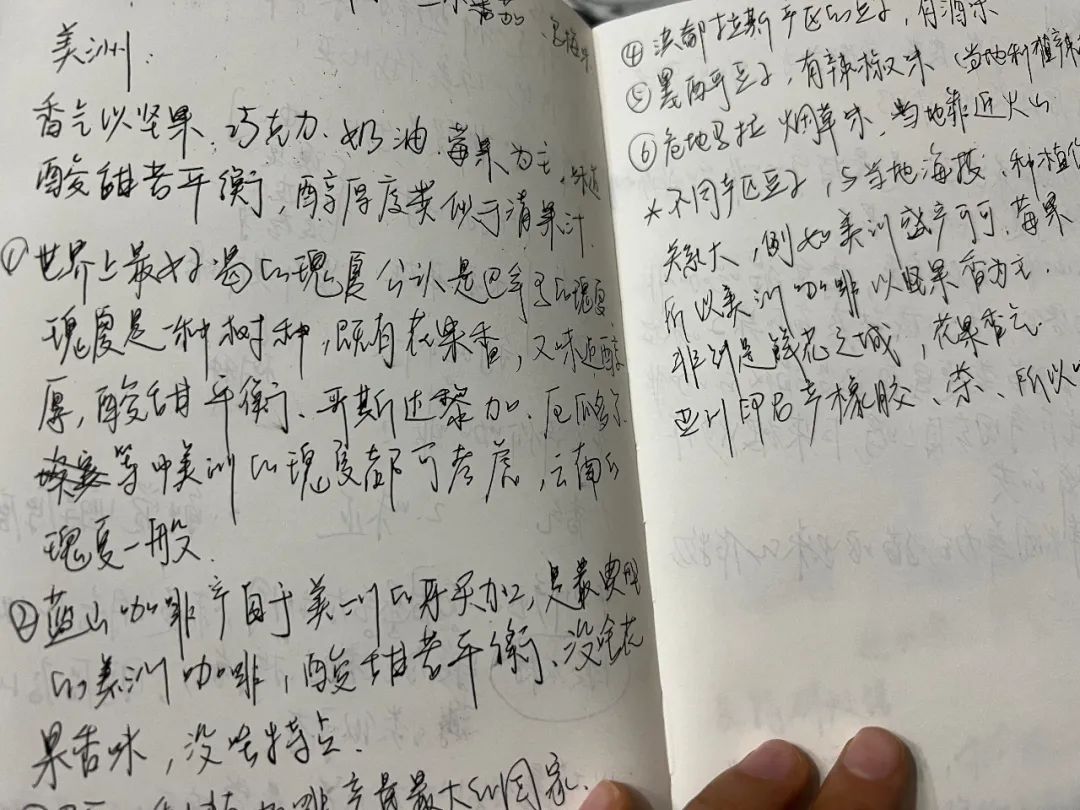 美洲:
香气以坚果、巧克力、奶油、莓果为主,味道
酸甜苦平衡,醇厚度类似于清果汁.
①世界上最好喝的瑰夏公认是巴拿马的瑰夏
瑰夏是一种树种,既有花果香,又味道醇
厚,酸甜平衡、哥斯达黎加、厄瓜多尔
等中美洲的瑰夏都可考虑,云南的
瑰夏一般.
②蓝山咖啡产自于美洲的牙买加,是最贵的
的美洲咖啡,酸甜苦平衡、没啥花
果香味,没啥特点.
咖啡产量最大的国家.
④洪都拉斯产区的豆子,有酒味
⑤墨西哥豆子,有辣椒味(当地种植辣
⑥危地马拉 烟草味,当地靠近火山
*不同产区豆子,与当地海拔、种植
关系大,例如美洲盛产可可、莓果
所以美洲咖啡以坚果香为主.
非洲是鲜花之城,花果香气.
亚洲印尼产橡胶、茶、所以